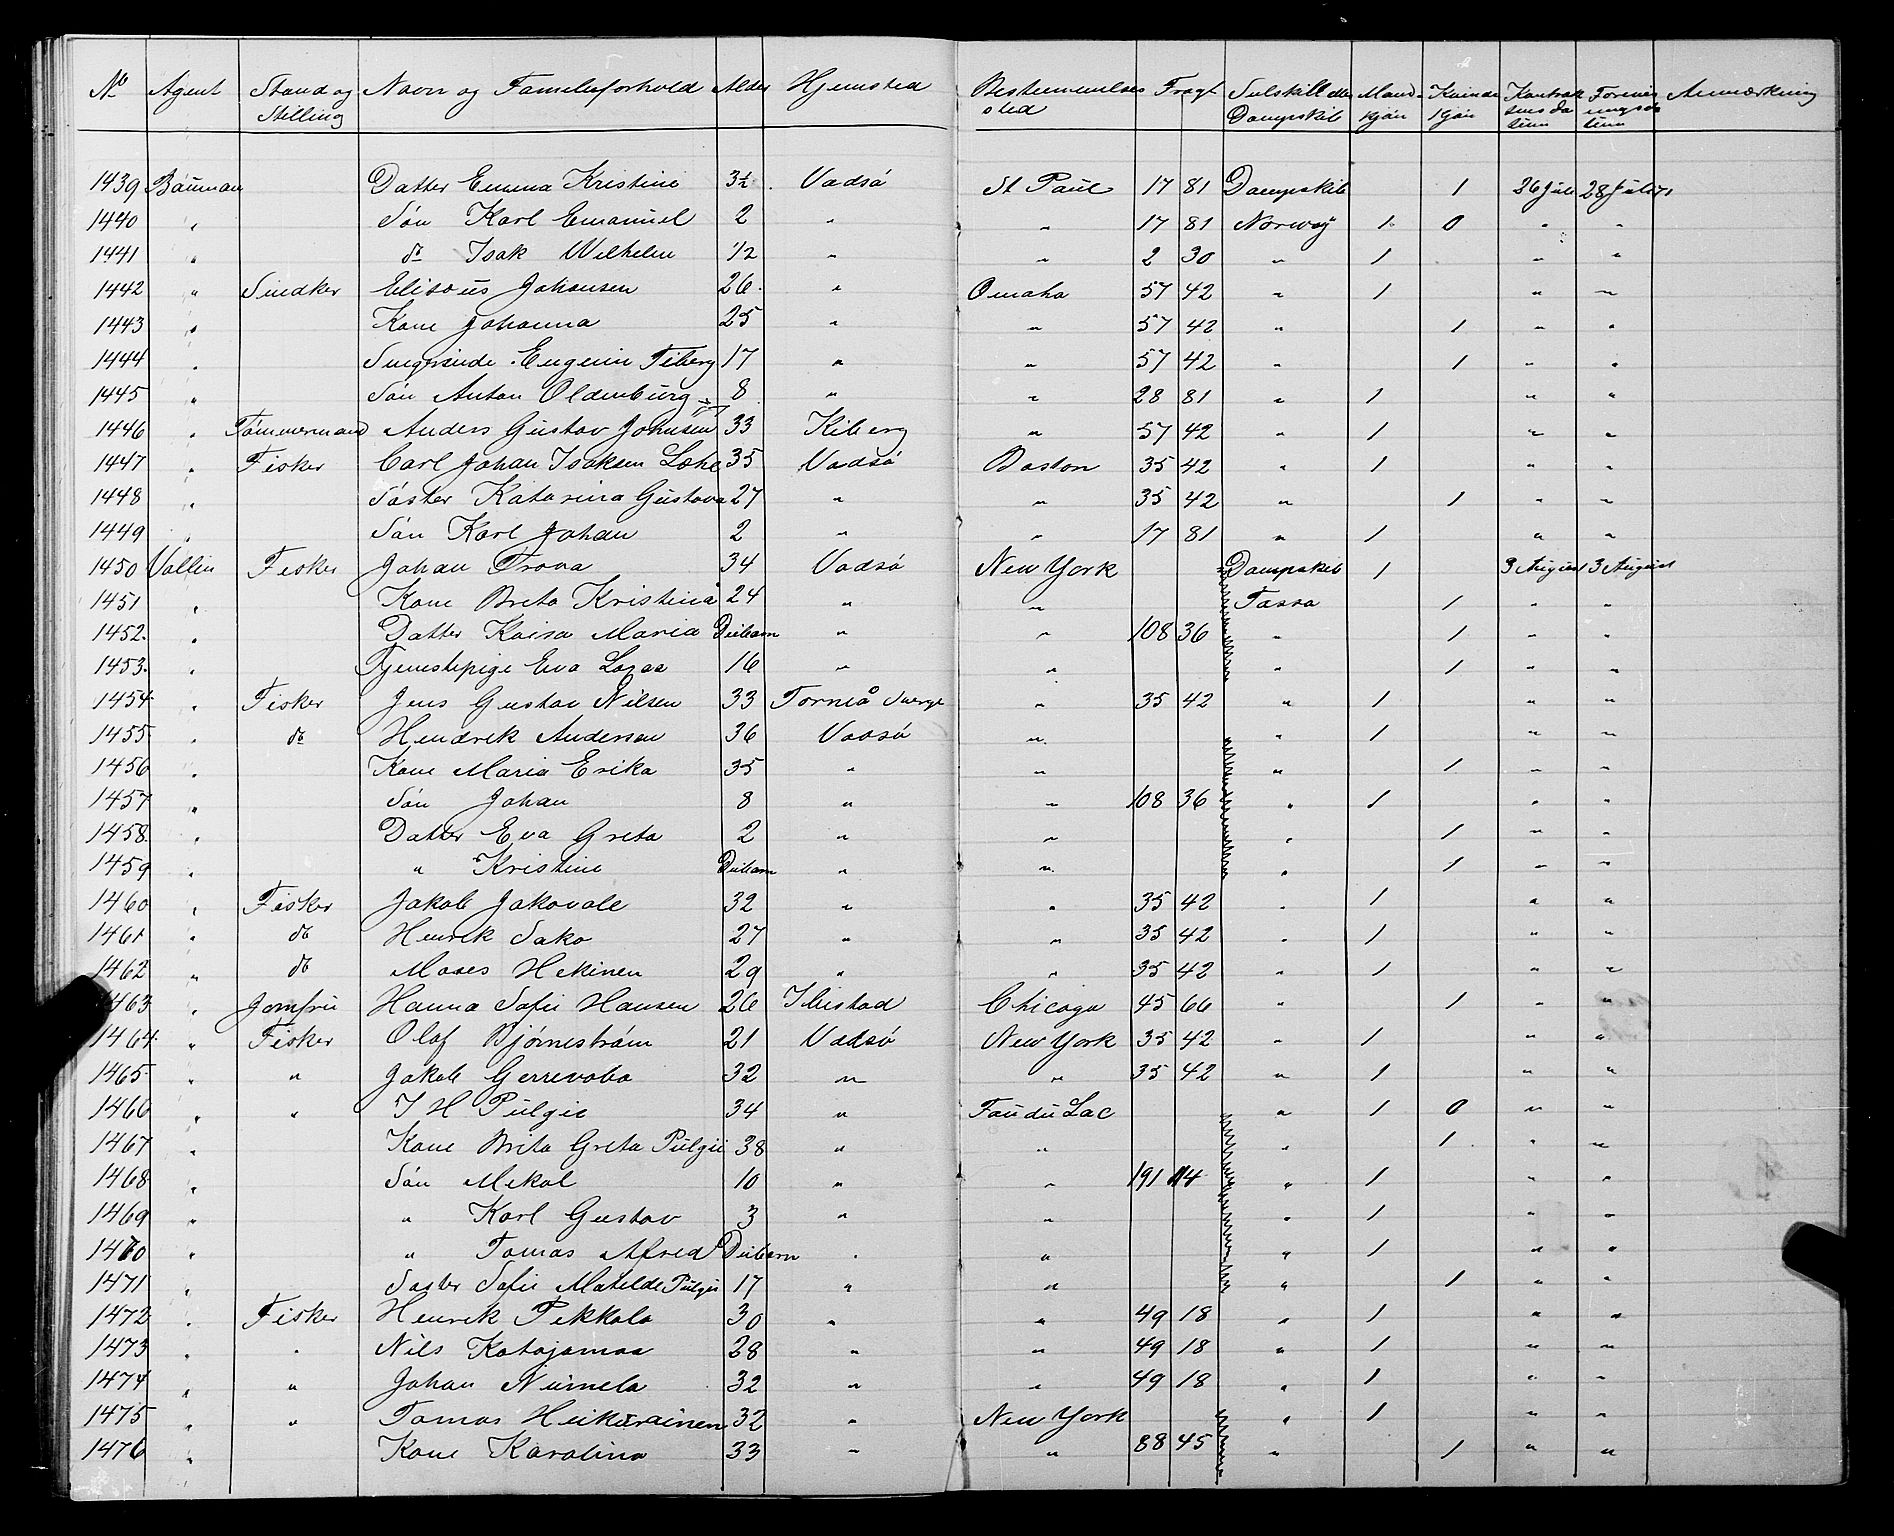 No Agent Stand og Stilling Navn og Familieforhold Alder Hjemsted Bestemmelses sted Fragt Seilskib eller Dampskib Mand kjön Kvinde kjön Kontrakt ens da tum Forevis ningsda tum Anmærkning
1439 Bauman Datter Emma Kristine 3½ Vadsö St Paul 17 81 Dampskib 1 26 Juli 28 Juli 71
1440 " Sön Karl Emanuel 2 " " 17 81 Norway 1 0 " "
1441 " do Isak Wilhelm 1/2 " " 2 30 " 1 " "
1442 " Snedker Elisæus Johansen 26 " Omaha 57 42 " 1 " "
1443 " Kone Johanna 25 " " 57 42 " 1 " "
1444 " Eugenie Fiberg 17 " " 57 42 " 1 " "
1445 " Sön Anton Oldenburg 8 " " 28 81 " 1 " "
1446 " Tömmermand Anders Gustav Johnsen 33 Kiberg " 57 42 " 1 " "
1447 " Fisker Carl Johan Isaksen 35 Vadsö Boston 35 42 " 1 " "
1448 " Söster Katarina Gustava 27 " " 35 42 " 1 " "
1449 " Sön Karl Johan 2 " " 17 81 " 1 " "
1450 Vallin Fisker Johan Trova 34 Vadsö New York Dampskib 1 3 August 3 August
1451 " Kone Brita Kristina 24 " " Tasso 1 " "
1452 " Datter Kaisa Maria Diebarn " " 108 36 " 1 " "
1453 " Tjenestepige Eva 16 " " " 1 " "
1454 " Fisker Jens Gustav Nilsen 33 Torneå Sverge " 35 42 " 1 " "
1455 " do Hendrik Andersen 36 Vadsö " " 1 " "
1456 " Kone Maria Erika 35 " " " 1 " "
1457 " Sön Johan 8 " " 108 36 " 1 " "
1458 " Datter Eva Greta 2 " " " 1 " "
1459 " " Kristine Diebarn " " " 1 " "
1460 " Fisker Jakob Jakovale 32 " " 35 42 " 1 " "
1461 " do Henrik Sako 27 " " 35 42 " 1 " "
1462 " do Moses Hekinen 29 " " 35 42 " 1 " "
1463 " Jomfru Hanna Sofie Hansen 26 Ibestad Chicago 45 66 " 1 " "
1464 " Fisker Olof Björneström 21 Vadsö New York 35 42 " 1 " "
1465 " " Jakob Gerrevoba 32 " " 35 42 " 1 " "
1466 " " I H Pulgie 34 " Fau du Lac " 1 0 " "
1467 " Kone Brita Greta Pulgii 38 " " " 1 " "
1468 " Sön Mekal 10 " " 191 114 " 1 " "
1469 " " Karl Gustav 3 " " " 1 " "
1470 " " Tomas Alfred Diebarn " " " 1 " "
1471 " Söster Sofie Matilde Pulgii 17 " " " 1 " "
1472 " Fisker Henrik Pekkala 30 " " 49 18 " 1 " "
1473 " " Nils Katajamaa 28 " " 49 18 " 1 " "
1474 " " Johan Niemela 32 " " 49 18 " 1 " "
1475 " " Tomas 32 " New York " 1 " "
1476 " Kone Karolina 33 " " 88 45 " 1 " "